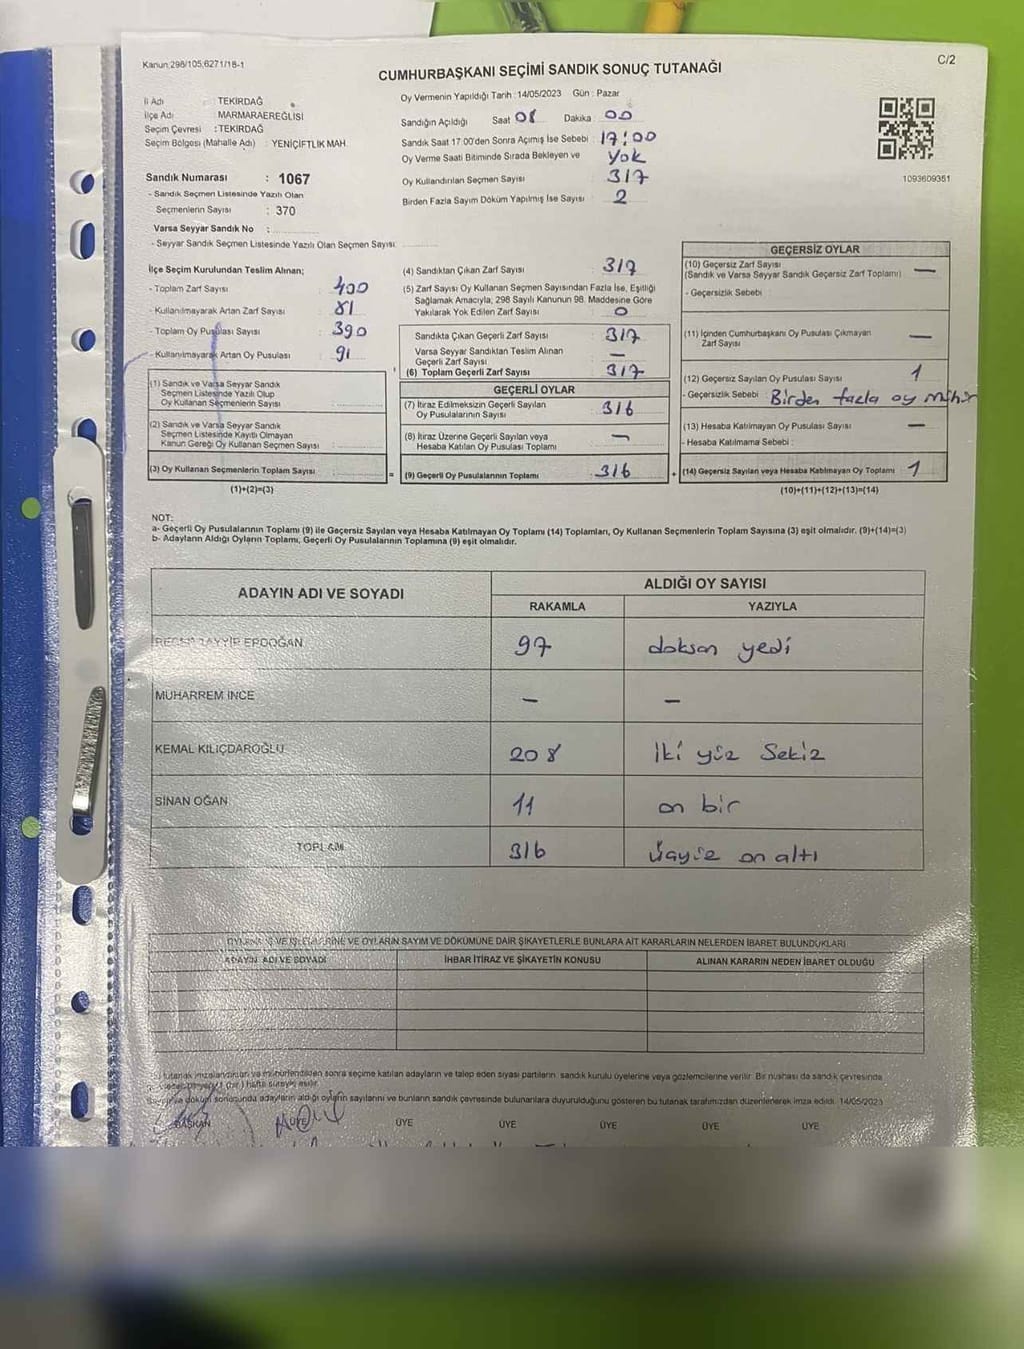 Kanun:298/105,6271/18-1
C/2
CUMHURBAŞKANI SEÇİMİ SANDIK SONUÇ TUTANAĞI
İl Adı : TEKİRDAĞ
İlçe Adı : MARMARAEREĞLİSİ
Seçim Çevresi :TEKİRDAĞ
Seçim Bölgesi (Mahalle Adı) : YENİÇİFTLİK MAH.
Sandık Numarası : 1067
- Sandık Seçmen Listesinde Yazılı Olan
Seçmenlerin Sayısı : 370
Varsa Seyyar Sandık No :
- Seyyar Sandık Seçmen Listesinde Yazılı Olan Seçmen Sayısı:
Oy Vermenin Yapıldığı Tarih : 14/05/2023 Gün : Pazar
Sandığın Açıldığı Saat 08 Dakika 00
Sandık Saat 17.00'den Sonra Açımış İse Sebebi : 17:00
Oy Verme Saati Bitiminde Sırada Bekleyen ve Yok
Oy Kullandırılan Seçmen Sayısı 317
Birden Fazla Sayım Döküm Yapılmış İse Sayısı : 2
1093609351
İlçe Seçim Kurulundan Teslim Alınan;
- Toplam Zarf Sayısı : 400
- Kullanılmayarak Artan Zarf Sayısı : 81
- Toplam Oy Pusulası Sayısı : 390
- Kullanılmayarak Artan Oy Pusulası : 91
(1) Sandık ve Varsa Seyyar Sandık
Seçmen Listesinde Yazılı Olup
Oy Kullanan Seçmenlerin Sayısı
(2) Sandık ve Varsa Seyyar Sandık
Seçmen Listesinde Kayıtlı Olmayan
Kanun Gereği Oy Kullanan Seçmen Sayısı
(3) Oy Kullanan Seçmenlerin Toplam Sayısı
(1)+(2)=(3)
(4) Sandıktan Çıkan Zarf Sayısı : 317
(5) Zarf Sayısı Oy Kullanan Seçmen Sayısından Fazla İse, Eşitliği
Sağlamak Amacıyla, 298 Sayılı Kanunun 98. Maddesine Göre
Yakılarak Yok Edilen Zarf Sayısı : 0
Sandıkta Çıkan Geçerli Zarf Sayısı : 317
Varsa Seyyar Sandıktan Teslim Alınan
Geçerli Zarf Sayısı : —
(6) Toplam Geçerli Zarf Sayısı : 317
GEÇERLİ OYLAR
(7) İtiraz Edilmeksizin Geçerli Sayılan
Oy Pusulalarının Sayısı : 316
(8) İtiraz Üzerine Geçerli Sayılan veya
Hesaba Katılan Oy Pusulası Toplamı : —
= (9) Geçerli Oy Pusulalarının Toplamı : 316
GEÇERSİZ OYLAR
(10) Geçersiz Zarf Sayısı
(Sandık ve Varsa Seyyar Sandık Geçersiz Zarf Toplamı) : —
- Geçersizlik Sebebi :
(11) İçinden Cumhurbaşkanı Oy Pusulası Çıkmayan
Zarf Sayısı : —
(12) Geçersiz Sayılan Oy Pusulası Sayısı : 1
- Geçersizlik Sebebi : Birden fazla oy mühür
(13) Hesaba Katılmayan Oy Pusulası Sayısı : —
- Hesaba Katılmama Sebebi :
+ (14) Geçersiz Sayılan veya Hesaba Katılmayan Oy Toplamı : 1
(10)+(11)+(12)+(13)=(14)
NOT:
a- Geçerli Oy Pusulalarının Toplamı (9) ile Geçersiz Sayılan veya Hesaba Katılmayan Oy Toplamı (14) Toplamları, Oy Kullanan Seçmenlerin Toplam Sayısına (3) eşit olmalıdır. (9)+(14)=(3)
b- Adayların Aldığı Oyların Toplamı, Geçerli Oy Pusulalarının Toplamına (9) eşit olmalıdır.
ADAYIN ADI VE SOYADI
ALDIĞI OY SAYISI
RAKAMLA YAZIYLA
RECEP TAYYİP ERDOĞAN 97 doksan yedi
MUHARREM İNCE — —
KEMAL KILIÇDAROĞLU 208 İki yüz Sekiz
SİNAN OĞAN 11 on bir
TOPLAM 316 Üçyüz on altı
OYLARIN SAYIM VE DÖKÜMÜNE DAİR ŞİKAYETLERLE BUNLARA AİT KARARLARIN NELERDEN İBARET BULUNDUKLARI
ADAYIN ADI VE SOYADI İHBAR İTİRAZ VE ŞİKAYETİN KONUSU ALINAN KARARIN NEDEN İBARET OLDUĞU
tutanak imzalandıktan ve mühürlendikten sonra seçime katılan adayların ve talep eden siyasi partilerin sandık kurulu üyelerine veya gözlemcilerine verilir. Bir nüshası da sandık çevresinde
hafta süreyle asılır.
döküm sonucunda adayların aldığı oyların sayılarını ve bunların sandık çevresinde bulunanlara duyurulduğunu gösteren bu tutanak tarafımızdan düzenlenerek imza edildi. 14/05/2023
BAŞKAN ÜYE ÜYE ÜYE ÜYE ÜYE